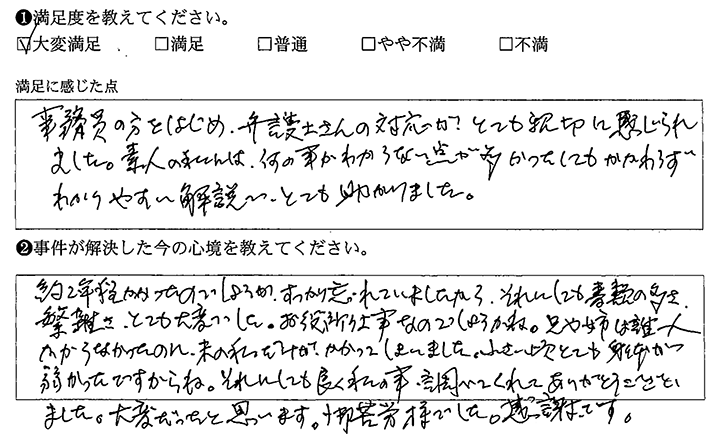 ❶満足度を教えてください。
☑大変満足 □満足 □普通 □やや不満 □不満
満足に感じた点
事務員の方をはじめ、弁護士さんの対応が、とても親切に感じられ
ました。素人の私には、何の事かわからない点が多かったにもかかわらず
わかりやすい解説で、とても助かりました。
❷事件が解決した今の心境を教えてください。
約2年程かかったのでしょうか、すっかり忘れていましたから、それにしても書類の多さ、
繁雑さ、とても大変でした。お役所仕事なのでしょうかね。兄や姉は誰一人
かからなかったのに、末の私だけが、かかってしまいました。小さい頃とても身体が
弱かったですからね。それにしても良く私の事、調べてくれてありがとうござい
ました。大変だったと思います。御苦労様でした。感謝です。